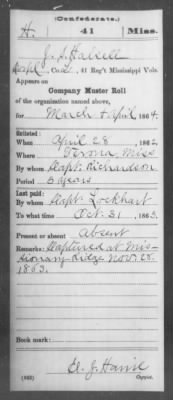 (Confederate.)
H. 41 Miss.
J. J. Halsell
Capt. Co. , 41 Reg't Mississippi Vols.
Appears on
Company Muster Roll
of the organization named above,
for March & April, 1864.
Enlisted:
When April 28, 1862.
Where Verona Miss
By whom Capt. Richardson
Period 3 years
Last paid:
By whom Capt. Lockhart
To what time Oct. 31, 1863.
Present or absent Absent
Remarks: Captured at Mis-
sionary Ridge Nov. 25.
1863.
Book mark:
(642) Copyist.